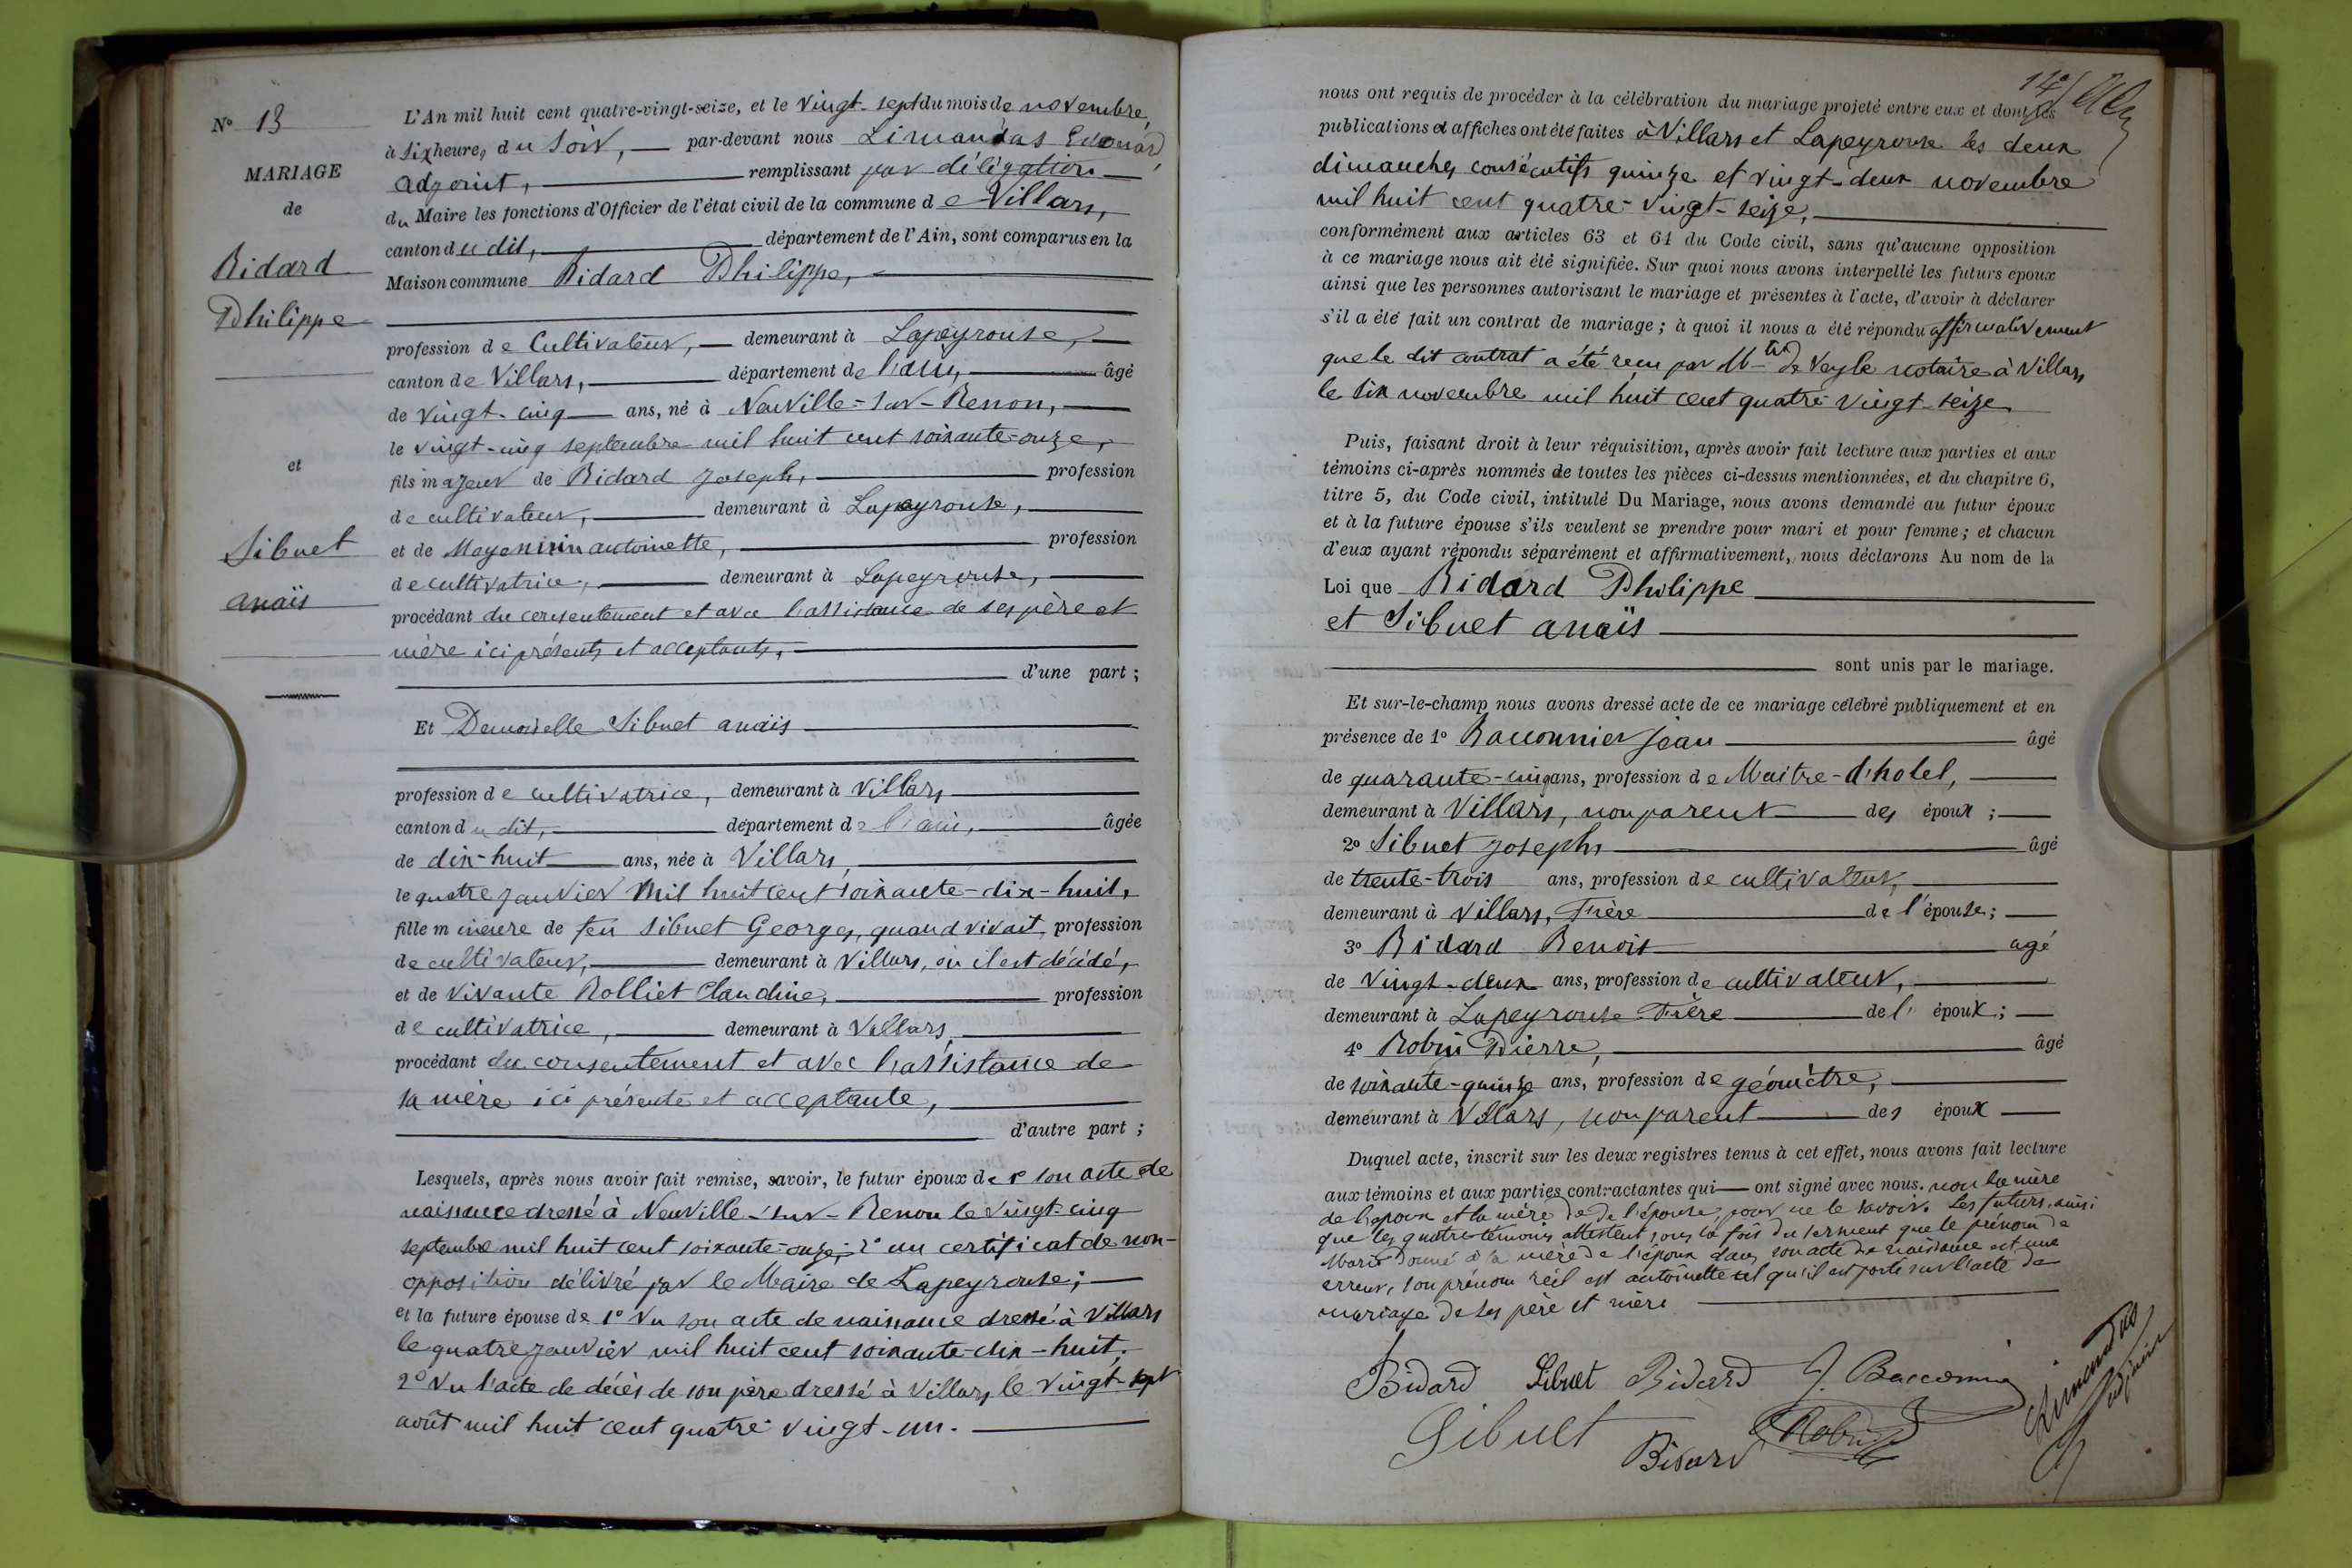 N° 13
MARIAGE
de
Bidard
Philippe
et
Sibuet
anaïs
L'An mil huit cent quatre-vingt-seize, et le vingt-sept du mois de novembre,
à six heures du soir, par-devant nous Limandas Edouard,
adjoint, remplissant par délégation
du Maire les fonctions d'Officier de l'état civil de la commune de Villars,
canton du dit, département de l'Ain, sont comparus en la
Maison commune Bidard Philippe,
profession de Cultivateur, demeurant à Lapeyrouse,
canton de Villars, département de l'ain, âgé
de vingt-cinq ans, né à Neuville-sur-Renon,
le vingt-cinq septembre mil huit cent soixante-onze,
fils majeur de Bidard Joseph, profession
de cultivateur, demeurant à Lapeyrouse,
et de antoinette, profession
de cultivatrice, demeurant à Lapeyrouse,
procédant du consentement et avec l'assistance de ses père et
mère ici présents et acceptants,
d'une part ;
Et Demoiselle Sibuet anaïs
profession de cultivatrice, demeurant à Villars
canton du dit, département de l'ain, âgée
de dix-huit ans, née à Villars,
le quatre janvier mil huit cent soixante-dix-huit,
fille mineure de feu Sibuet Georges, quand vivait, profession
de cultivateur, demeurant à Villars, où il est décédé,
et de vivante Rolliet Claudine, profession
de cultivatrice, demeurant à Villars,
procédant du consentement et avec l'assistance de
sa mère ici présente et acceptante,
d'autre part ;
Lesquels, après nous avoir fait remise, savoir, le futur époux de 1° son acte de
naissance dressé à Neuville-sur-Renon le vingt-cinq
septembre mil huit cent soixante-onze; 2° un certificat de non-
opposition délivré par le Maire de Lapeyrouse;
et la future épouse de 1° Vu son acte de naissance dressé à Villars
le quatre janvier mil huit cent soixante-dix-huit;
2° Vu l'acte de décès de son père dressé à Villars le vingt-sept
août mil huit cent quatre vingt-un.
14e
nous ont requis de procéder à la célébration du mariage projeté entre eux et dont les
publications et affiches ont été faites à Villars et Lapeyrouse les deux
dimanches consécutifs quinze et vingt-deux novembre
mil huit cent quatre-vingt-seize,
conformément aux articles 63 et 64 du Code civil, sans qu'aucune opposition
à ce mariage nous ait été signifiée. Sur quoi nous avons interpellé les futurs époux
ainsi que les personnes autorisant le mariage et présentes à l'acte, d'avoir à déclarer
s'il a été fait un contrat de mariage ; à quoi il nous a été répondu affirmativement
que le dit contrat a été reçu par Mtre de Veyle notaire à Villars
le six novembre mil huit cent quatre vingt-seize
Puis, faisant droit à leur réquisition, après avoir fait lecture aux parties et aux
témoins ci-après nommés de toutes les pièces ci-dessus mentionnées, et du chapitre 6,
titre 5, du Code civil, intitulé Du Mariage, nous avons demandé au futur époux
et à la future épouse s'ils veulent se prendre pour mari et pour femme ; et chacun
d'eux ayant répondu séparément et affirmativement, nous déclarons Au nom de la
Loi que Bidard Philippe
et Sibuet anaïs
sont unis par le mariage.
Et sur-le-champ nous avons dressé acte de ce mariage célébré publiquement et en
présence de 1° Bacconnier Jean âgé
de quarante-cinq ans, profession de Maitre-d'hotel,
demeurant à Villars, non parent des époux ;
2° Sibuet Joseph, âgé
de trente-trois ans, profession de cultivateur,
demeurant à Villars, Frère de l'épouse ;
3° Bidard Benoit agé
de vingt-deux ans, profession de cultivateur,
demeurant à Lapeyrouse Frère de l' époux ;
4° Robin Pierre, âgé
de soixante-quinze ans, profession de géomètre,
demeurant à Villars, non parent des époux
Duquel acte, inscrit sur les deux registres tenus à cet effet, nous avons fait lecture
aux témoins et aux parties contractantes qui ont signé avec nous. non la mère
de l'époux et la mère de de l'épouse, pour ne le savoir. Les futurs, ainsi
que les quatre témoins attestent, sous la foi du serment que le prénom de
Marie donné à la mère de l'époux dans son acte de naissance est une
erreur, son prénom réel est antoinette tel qu'il est porté sur l'acte de
mariage de ses père et mère
Bidard Sibuet Bidard J. Bacconnier
Sibuet Bidard Robin
Limandas
adjoint